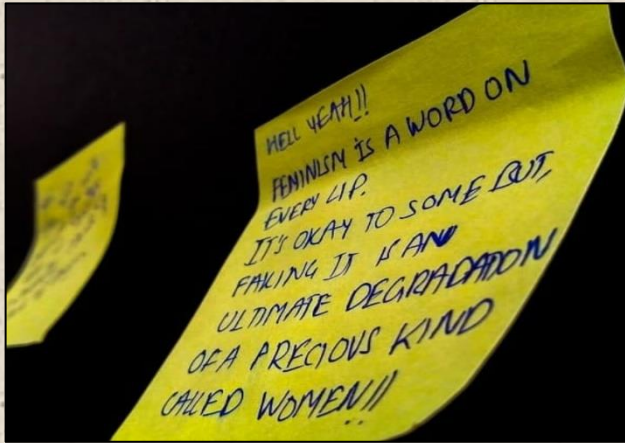 HELL YEAH!!
FEMINISM IS A WORD ON
EVERY LIP.
IT'S OKAY TO SOME BUT,
FAKING IT IS AN
ULTIMATE DEGRADATION
OF A PRECIOUS KIND
CALLED WOMEN!!